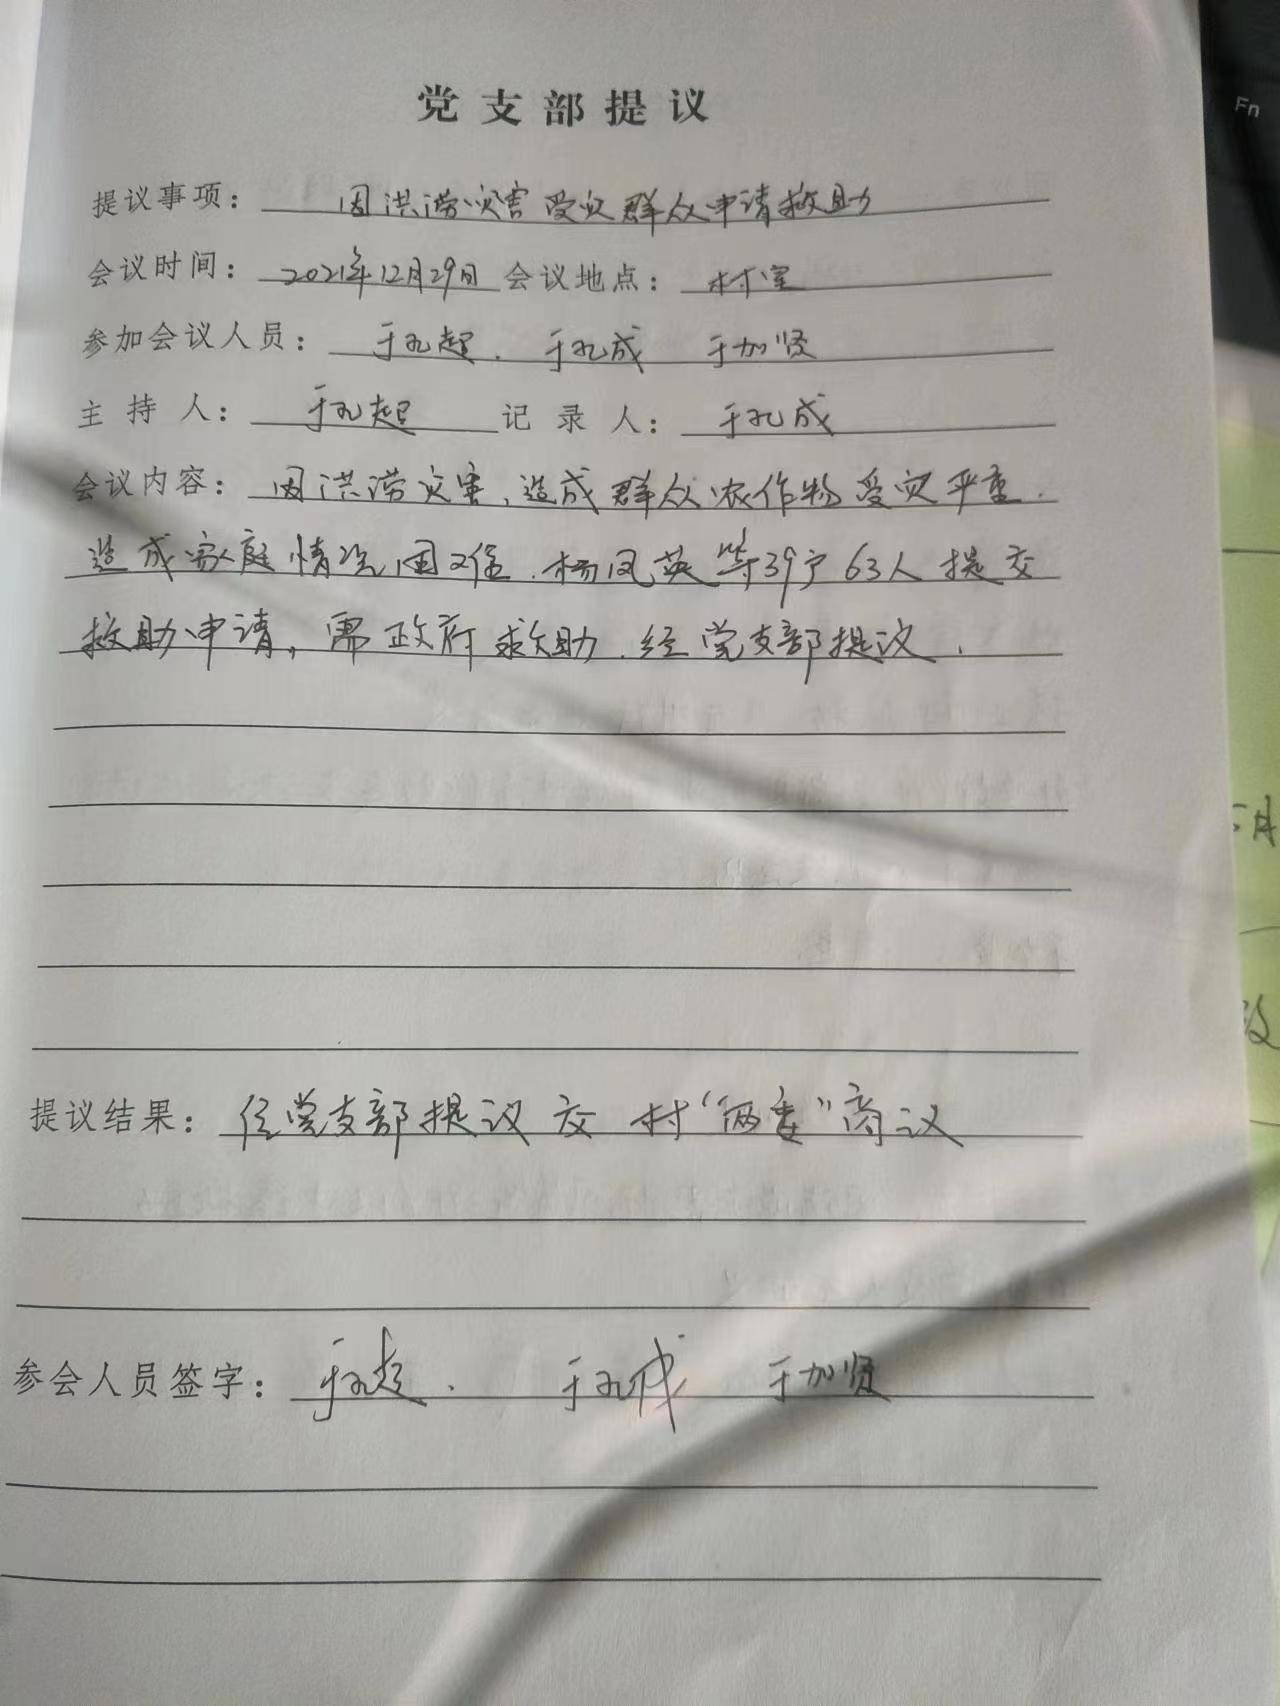 党支部提议
提议事项：因洪涝灾害受灾群众申请救助
会议时间：2021年12月29日 会议地点：村室
参加会议人员：于孔超. 于孔成 于加贤
主持人：于孔超 记录人：于孔成
会议内容：因洪涝灾害，造成群众农作物受灾严重.
造成家庭情况困难.杨凤英等39户63人提交
救助申请，需政府救助.经党支部提议.
提议结果：经党支部提议交村“两委”商议
参会人员签字：于孔超. 于孔成 于加贤
Fn
5月